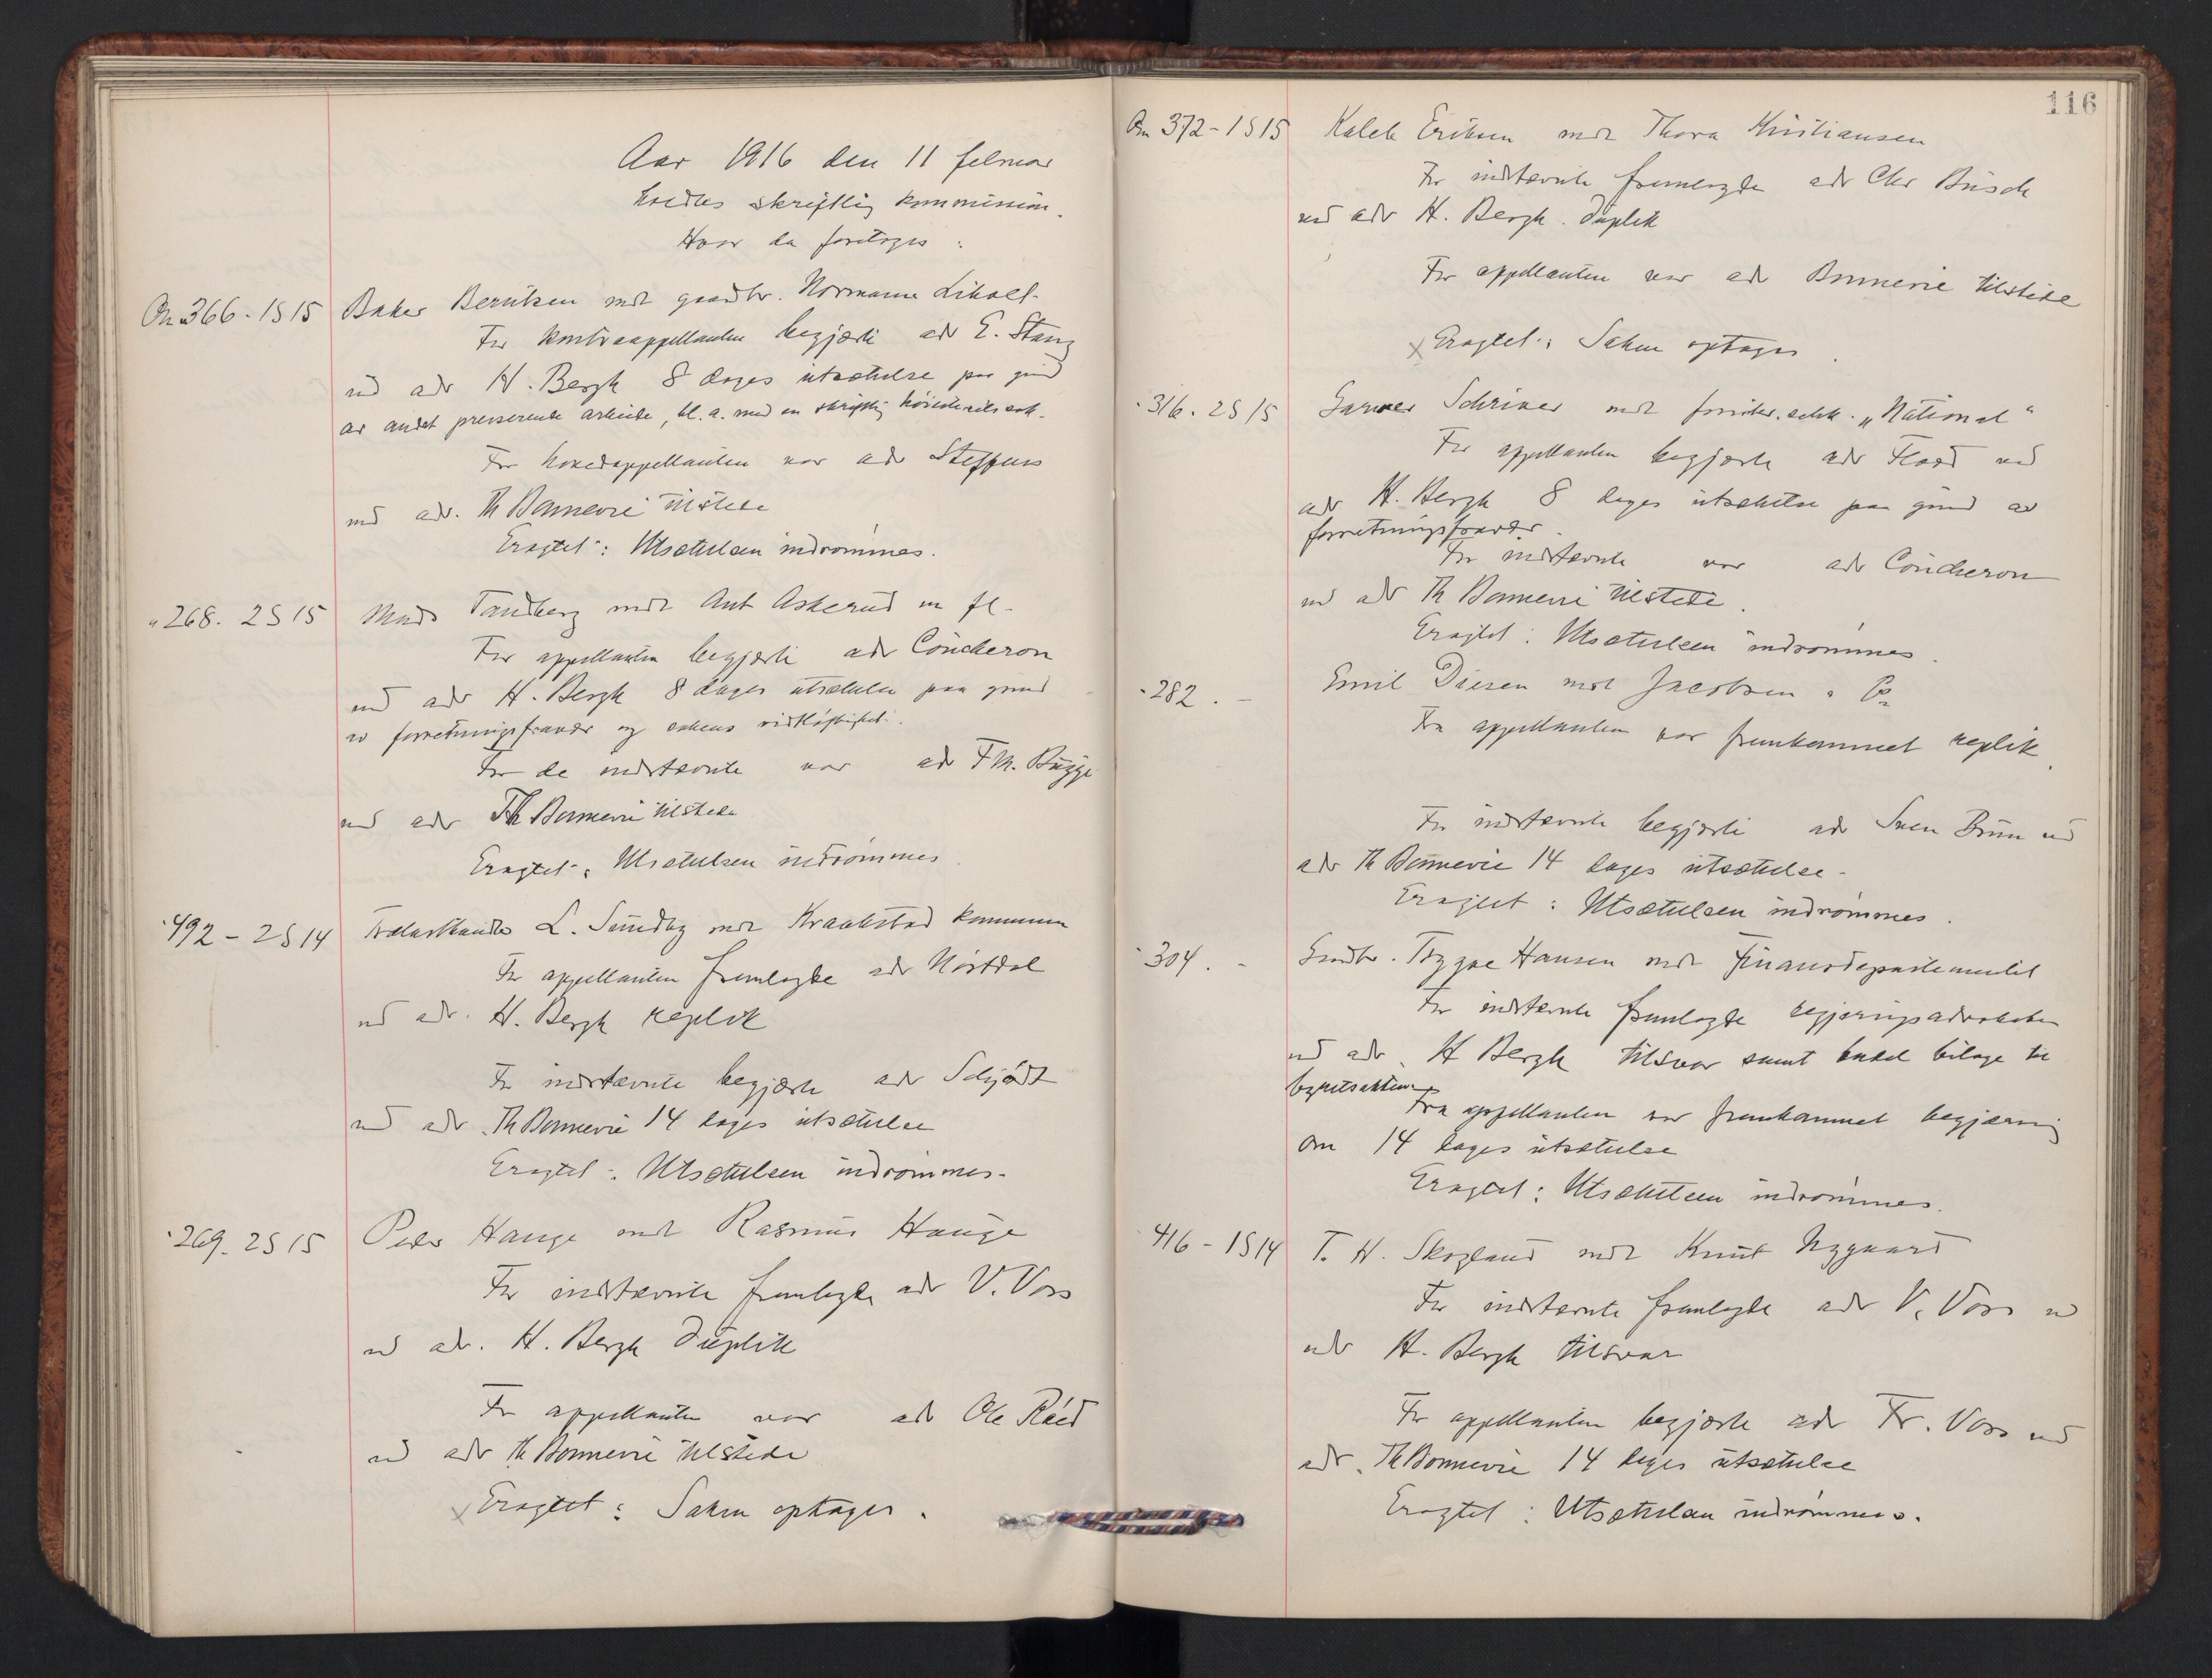 Aar 1916 den 11 februar
holdtes skriftlig kommission.
Hvor da foretoges:
An 366-1S15 Baker Beruksen mot gaardbr. Normann Liholt.
For kontraappellanten begjærte adv E. Stang
ved adv H. Bergh 8 dages utsættelse paa grund
av andet presserende arbeide, bl. a. med en skriftlig høiesteretssak.
For hovedappellanten var adv Steffens
ved adv. Th Bonnevie tilstede
Eragtet: Utsættelsen indrømmes.
" 268. 2S15 Mads Tandberg mot Ant Askerud m fl.
For appellanten begjærte adv Coucheron
ved adv H. Bergh 8 dages utsættelse paa grund
av forretningsfravær og sakens vidtløftighet.
For de indstevnte var adv F M. Bugge
ved adv Th Bonnevie tilstede
Eragtet: Utsættelsen indrømmes
" 492-2S14 Trælasthandler L. Sundby mot Kraakstad kommune
For appellanten fremlagde adv Nørtdal
ved adv. H. Bergh replik
For indstevnte begjærte adv Schjødt
ved adv Th Bonnevie 14 dages utsættelse
Eragtet: Utsættelsen indrømmes.
" 269. 2S15 Peder Hauge mot Rasmus Hauge
For indstevnte fremlagde adv V. Voss
ved adv. H. Bergh duplik
For appellanten var adv Ole Røed
ved adv Th Bonnevie tilstede
x Eragtet: Saken optages.
116
An 372-1S15 Kaleb Eriksen mot Thora Kristiansen
For indstevnte fremlagde adv Chr Busch
ved adv H. Bergh. duplik
For appellanten var adv Bonnevie tilstede
x Eragtet: Saken optages.
" 316. 2S15 Garver Schriver mot forsikr. selsk. „National"
For appellanten begjærte adv Flood ved
adv H. Bergh 8 dages utsættelse paa grund av
forretningsfravær.
For indstevnte var adv Coucheron
ved adv Th Bonnevie tilstede.
Eragtet: Utsættelsen indrømmes.
" 282. - Emil Diesen mot Jacobsen & Co
Fra appellanten var fremkommet replik.
For indstevnte begjærte adv Sven Bruun ved
adv Th Bonnevie 14 dages utsættelse.
Eragtet: Utsættelsen indrømmes.
" 304. - Gaardbr. Trygve Hansen mot Finansdepartementet
For indstevnte fremlagde regjeringsadvokaten
ved adv. H Bergh tilsvar samt endel bilage til
bevisakten
Fra appellanten var fremkommet begjæring
om 14 dages utsættelse
Eragtet: Utsættelsen indrømmes.
" 416-1S14 T. H. Skogland mot Knut Nygaard
For indstevnte fremlagde adv V. Voss v
adv H. Bergh tilsvar
For appellanten begjærte adv Fr. Voss ved
adv. Th Bonnevie 14 dages utsættelse
Eragtet: Utsættelsen indrømmes.